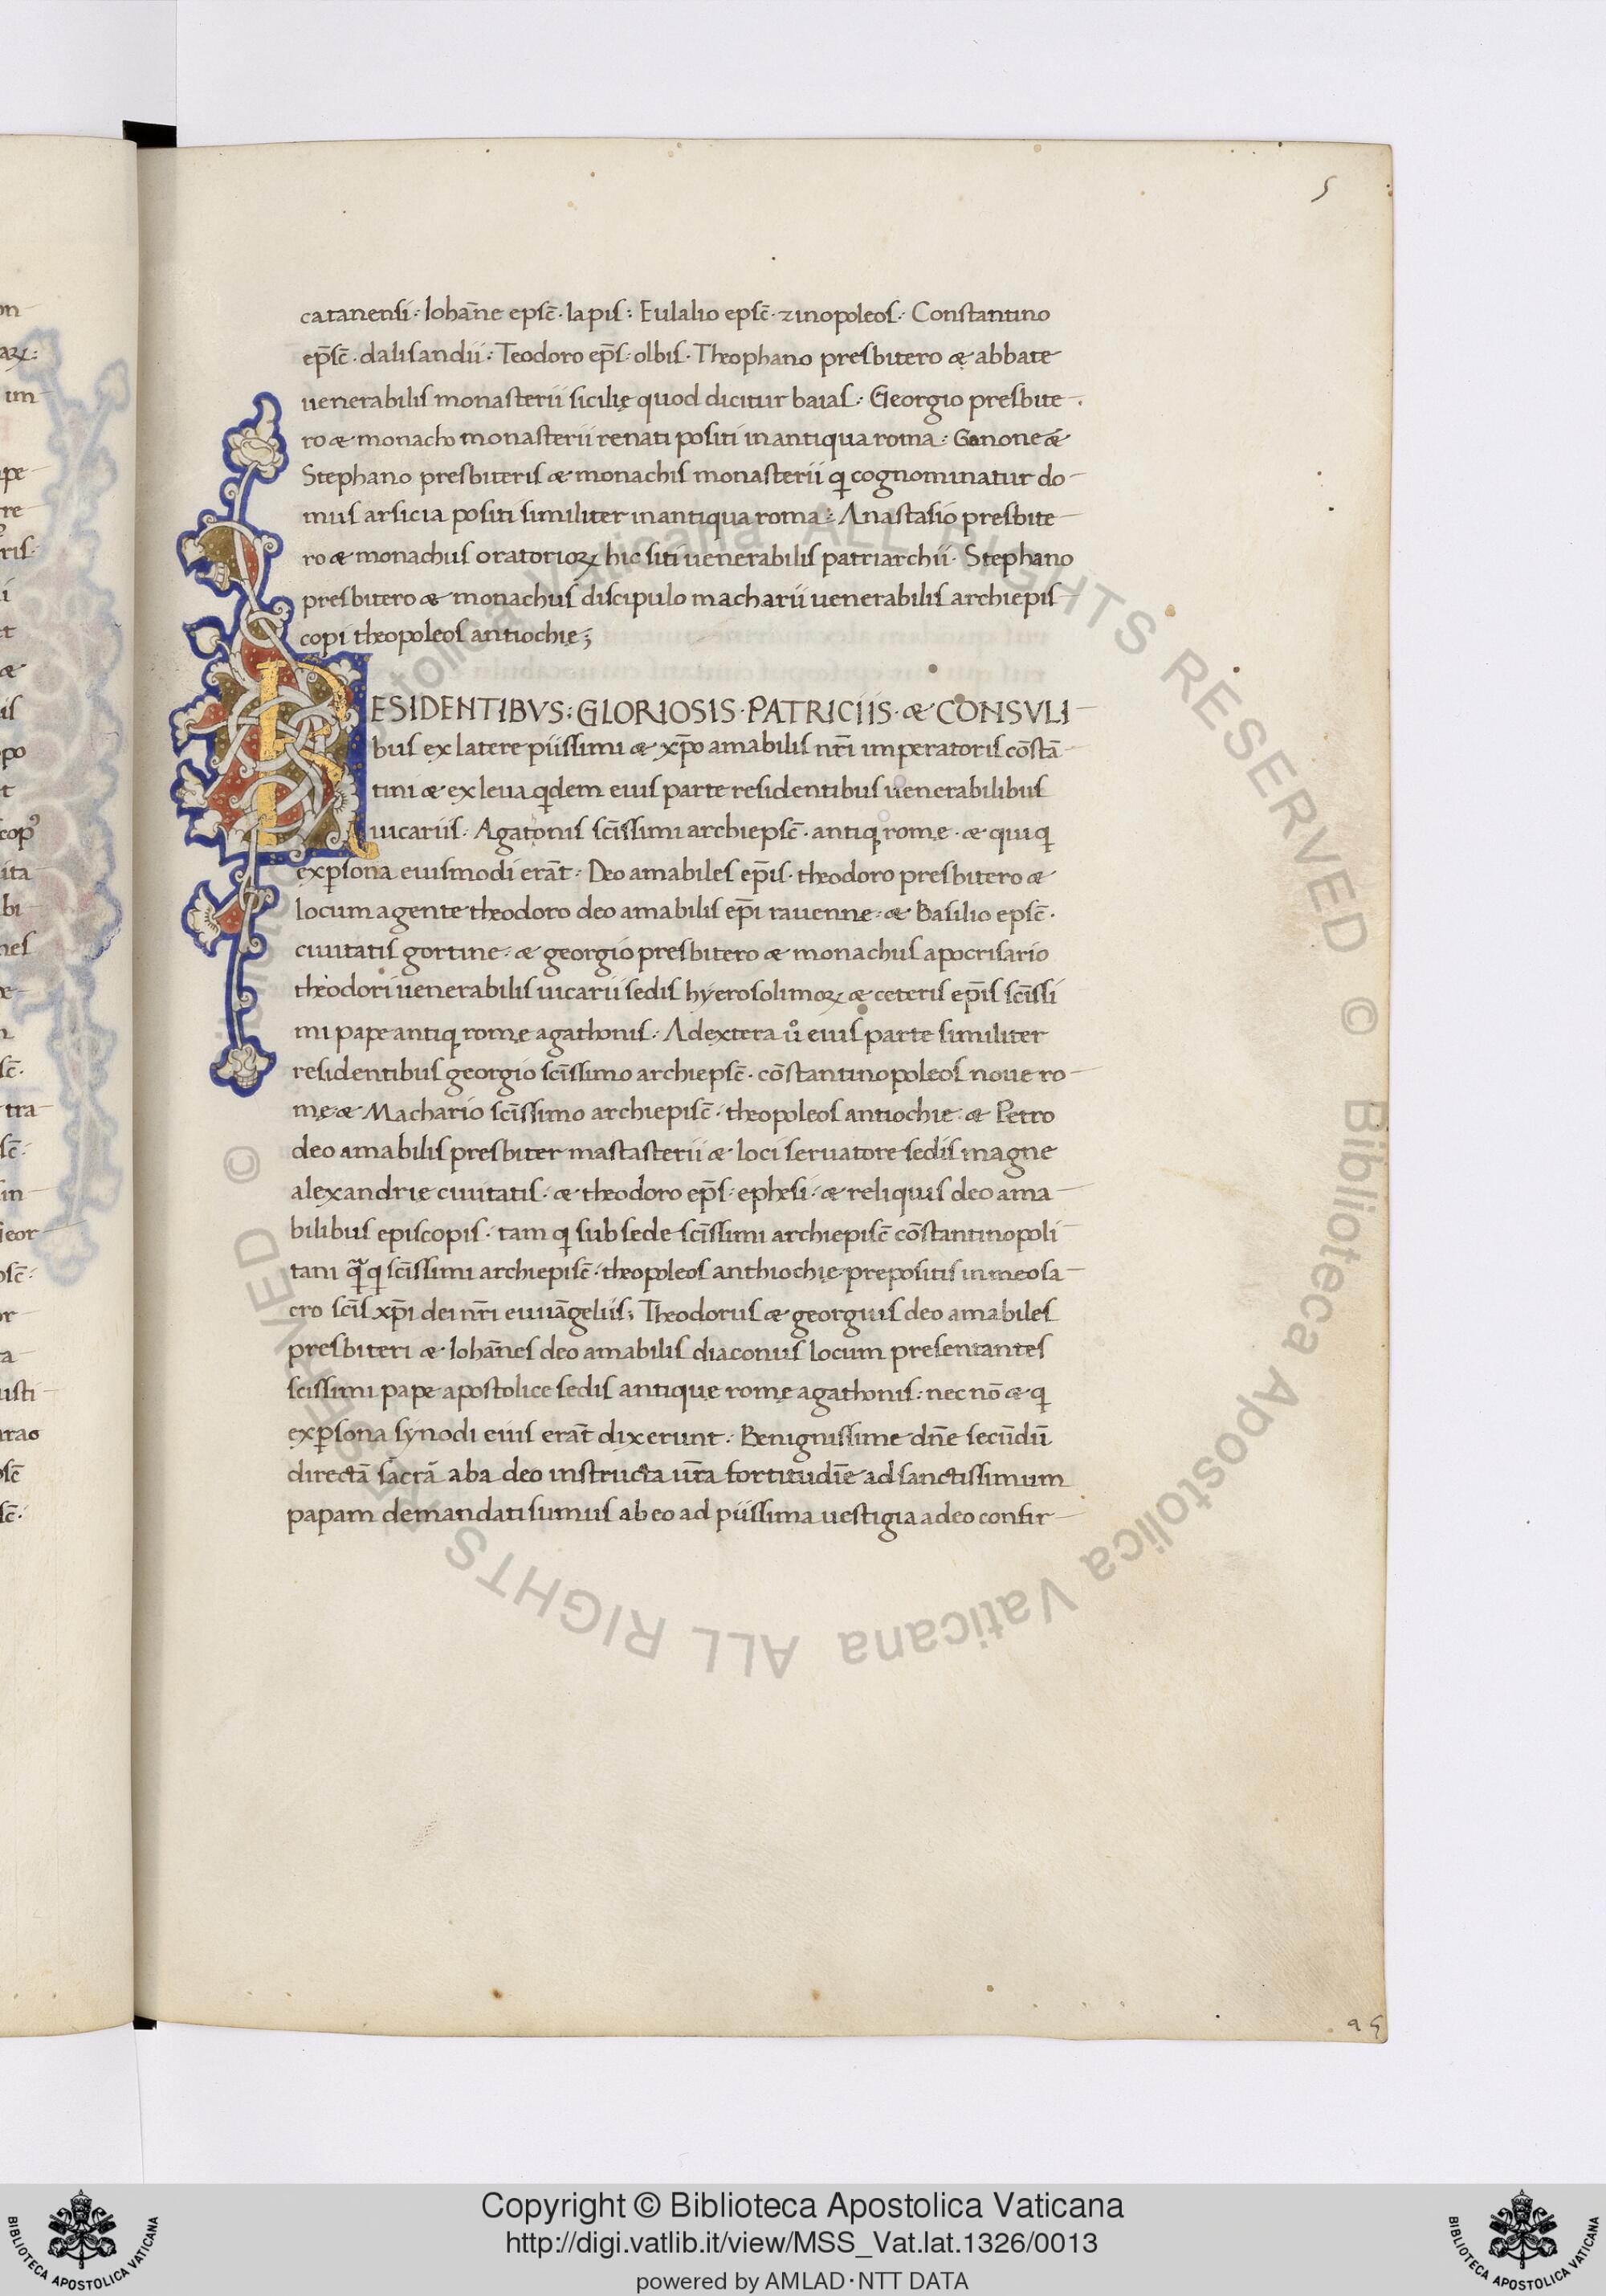 5
catanensi: Iohañe epsc̄. lapis: Eulalio epsc̄. zinopoleos: Constantino
ep̄sc̄. dalisandii: Teodoro ep̄s. olbis. Theophano presbitero & abbate
uenerabilis monasterii sicilię quod dicitur baias: Georgio presbite
ro & monacho monasterii renati positi in antiqua roma: Gonone &
Stephano presbiteris & monachis monasterii q̇ cognominatur do
mus arsicia positi similiter in antiqua roma: Anastasio presbite
ro & monachus oratorioꝝ hic siti uenerabilis patriarchii. Stephano
presbitero & monachus discipulo macharii uenerabilis archiepis
copi theopoleos antiochię;
RESIDENTIBVS: GLORIOSIS. PATRICIIS. & CONSVLI
bus ex latere piissimi & xp̄o amabilis nr̄i imperatoris cōstā
tini & ex leua qdem eius parte residentibus uenerabilibus
uicariis. Agatonis sc̄issimi archiepsc̄. antiq rome. & qui q
ex ꝑsona eiusmodi erāt: Deo amabiles ep̄is. theodoro presbitero &
locum agente theodoro deo amabilis ep̄i rauenne: & Basilio epsc̄.
ciuitatis gortine: & georgio presbitero & monachus apocrisario
theodori uenerabilis uicarii sedis hyerosolimoꝝ & ceteris ep̄is sc̄issi
mi pape antiq rome agathonis: A dextera ů eius parte similiter
residentibus georgio sc̄issimo archiepsc̄. cōstantinopoleos noue ro
mę & Machario sc̄issimo archiepisc̄. theopoleos antiochie: & Petro
deo amabilis presbiter mastasterii & loci seruatore sedis magne
alexandrie ciuitatis: & theodoro ep̄s. ephesi: & reliquis deo ama
bilibus episcopis. tam q sub sede sc̄issimi archiepisc̄ cōstantinopoli
tani q̄ q sc̄issimi archiepisc̄. theopoleos anthiochię prepositis in meo sa
cro sc̄is xp̄i dei nr̄i euuāgeliis; Theodorus & georgius deo amabiles
presbiteri & Iohān̄es deo amabilis diaconus locum presentantes
scissimi pape apostolice sedis antique romę agathonis: nec nō & q
ex ꝑsona synodi eius erāt dixerunt: Benignissime dn̄e secūdū
directā sacrā aba deo instructa ur̄a fortitudīe ad sanctissimum
papam demandati sumus ab eo ad piissima uestigia a deo confir
Copyright © Biblioteca Apostolica Vaticana
http://digi.vatlib.it/view/MSS_Vat.lat.1326/0013
powered by AMLAD·NTT DATA
BIBLIOTECA APOSTOLICA VATICANA
BIBLIOTECA APOSTOLICA VATICANA
© Biblioteca Apostolica Vaticana ALL RIGHTS RESERVED
© Biblioteca Apostolica Vaticana ALL RIGHTS RESERVED